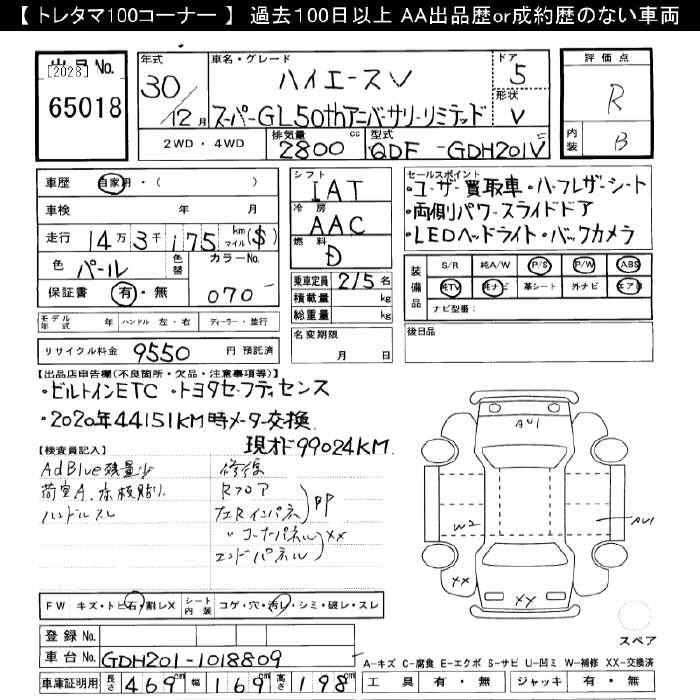 【 トレタマ100コーナー 】 過去100日以上 AA出品歴or成約歴のない車両
出品 No. [2028] 65018
年式 30/12月
車名・グレード ハイエースV
スーパーGL50thアニバーサリーリミテッド
ドア 5
形状 V
評価点 R
内装 B
2WD・4WD 排気量 2800 cc 型式 QDF-GDH201V
車歴 自家用・( )
車検 年 月
走行 14万3千175 km マイル ($)
色 パール 色替 カラーNo. 070
保証書 有・無
モデル年式 年 ハンドル 左・右 ディーラー・並行
リサイクル料金 9550 円 預託済
シフト IAT
冷房 AAC
燃料 D
乗車定員 2/5 名
積載量 kg
総重量 kg
名変期限 月 日
セールスポイント
・ユーザー買取車・ハーフレザーシート
・両側パワースライドドア
・LEDヘッドライト・バックカメラ
装備品 S/R 純A/W P/S P/W ABS
純TV 純ナビ 革シート 外ナビ エアB
ナビ型番:
後日品
【出品店申告欄(不良箇所・欠品・注意事項等)】
・ビルトインETC ・トヨタセーフティセンス
・2020年44151KM時メーター交換
現オド99024KM
【検査員記入】
AdBlue残量少
荷室A、床板貼り
ハンドルスレ
修復
Rフロア
左Rインパネ
〃コーナーパネル
エンドパネル
PP
XX
AU1
W2
AU1
XX
XY
スペア
FW キズ・トビ石・割レX シート内装 コゲ・穴・汚レ・シミ・破レ・スレ
登録 No.
車台 No. GDH201-1018809
車庫証明用 長さ 469 cm 幅 169 cm 高さ 198 cm
A-キズ C-腐食 E-エクボ S-サビ U-凹ミ W-補修 XX-交換済
工具 有・無 ジャッキ 有・無